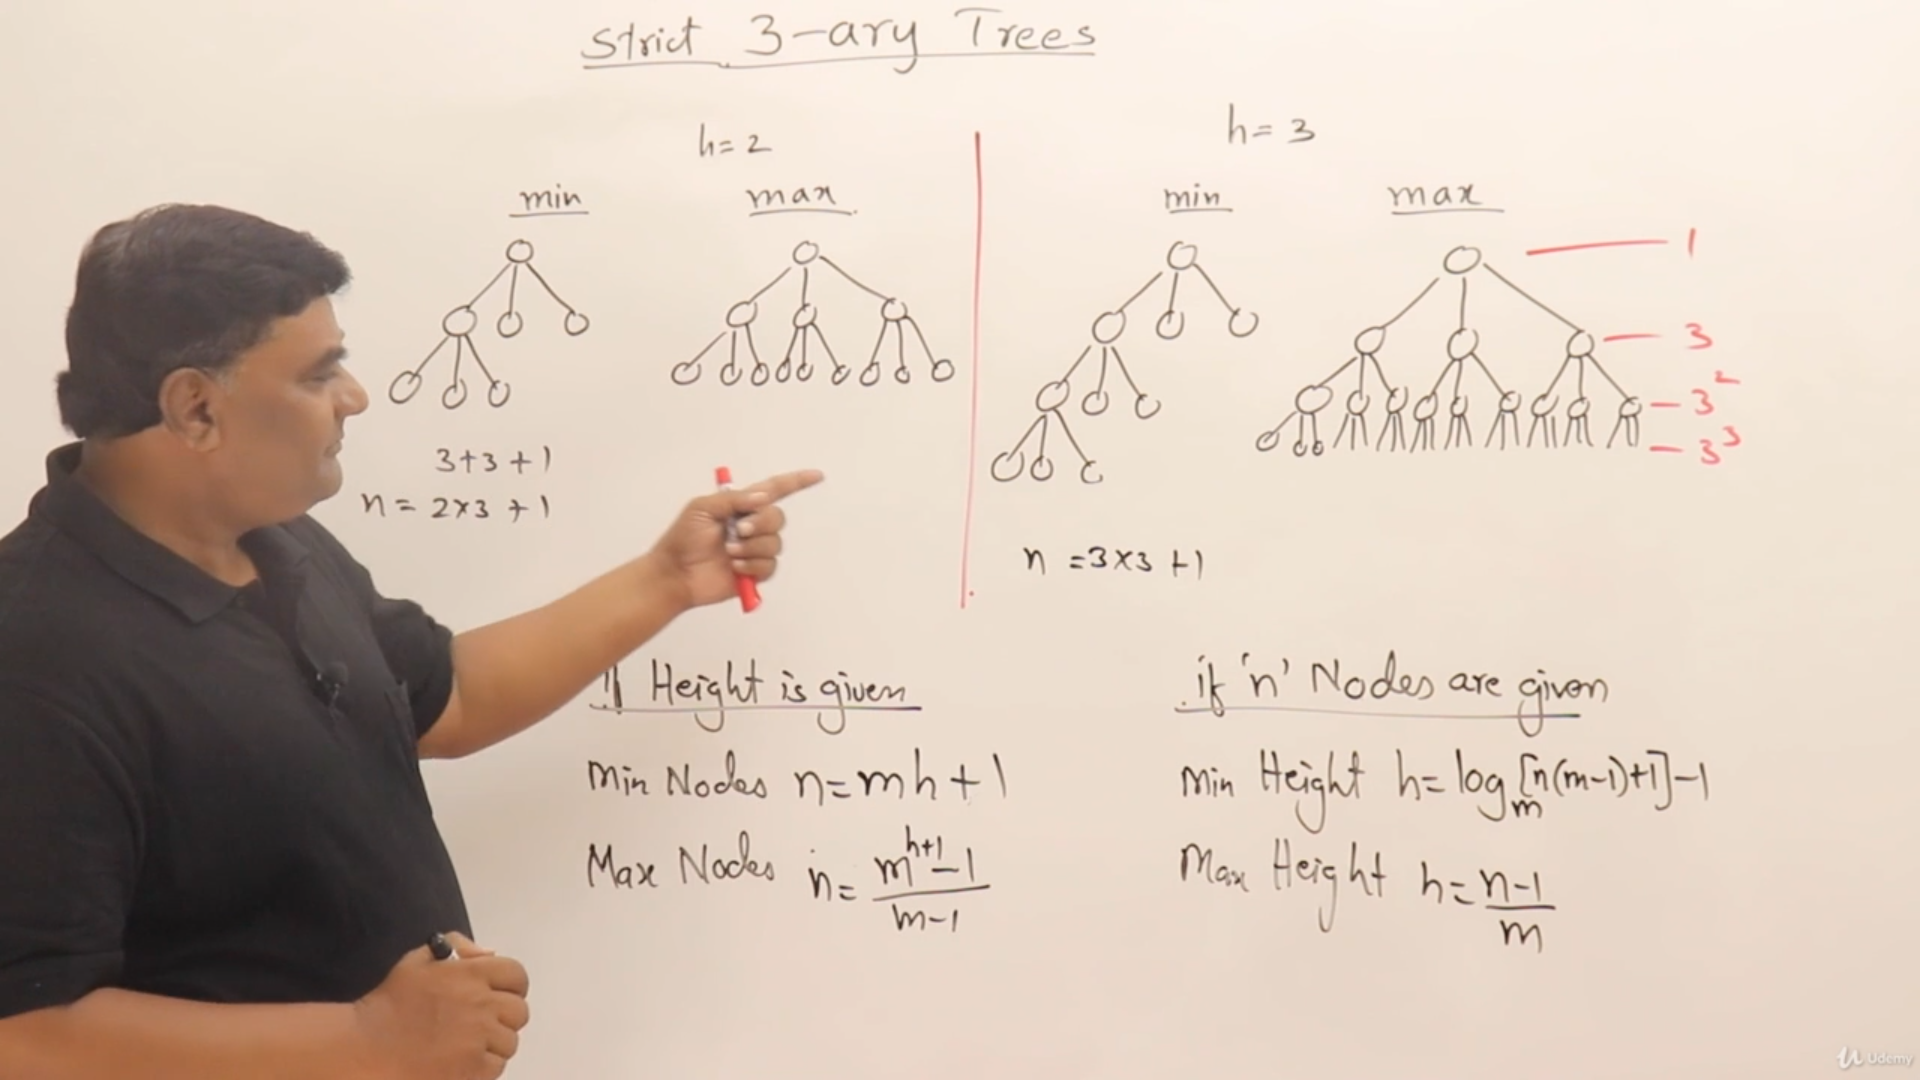 Strict 3-ary Trees
h=2
min
max
3+3+1
n= 2x3 +1
h= 3
min
max
1
3
3²
3³
n =3x3 +1
if Height is given
Min Nodes n=mh+1
Max Nodes n= m^h+1 -1 / m-1
if 'n' Nodes are given
Min Height h= log m [n(m-1)+1]-1
Max Height h= n-1 / m
Udemy